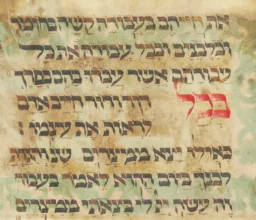 את חייהם בעבודה קשה בחומר
ובלבנים ובכל עבודה את כל
עבודתם אשר עבדו בהם בפרך
בכל דור ודור חייב אדם
לראות את עצמו
כאילו יצא ממצרים
לבנך ביום ההוא לאמר בעבור
זה עשה יי לי בצאתי ממצרים